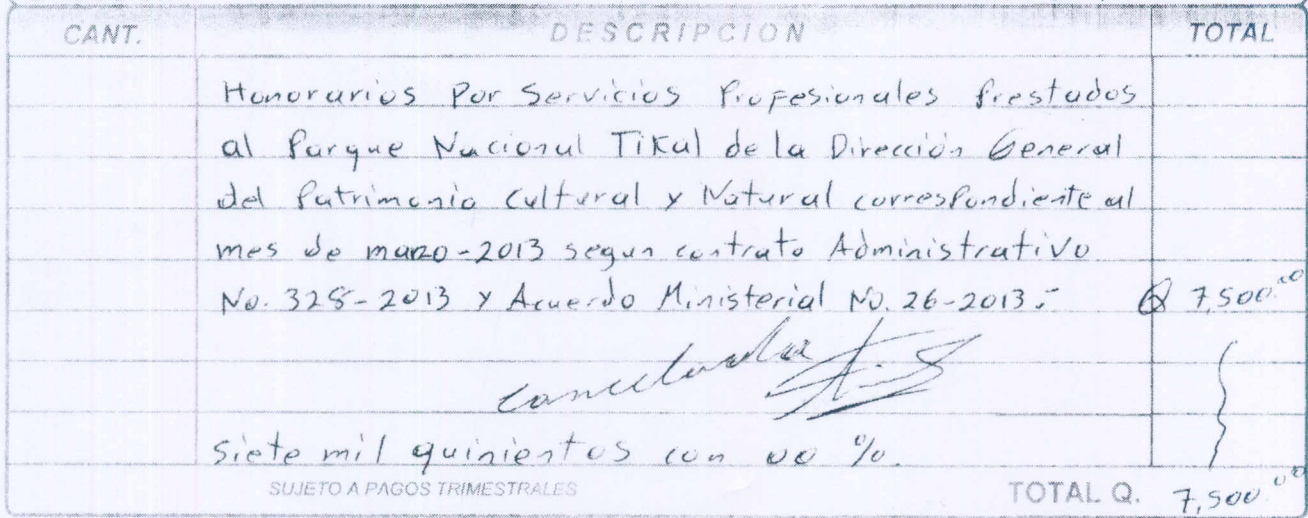 CANT. DESCRIPCION TOTAL
Honorarios Por Servicios Profesionales Prestados
al Parque Nacional Tikal de la Dirección General
del Patrimonio Cultural y Natural correspondiente al
mes de marzo-2013 segun contrato Administrativo
No. 328-2013 y Acuerdo Ministerial No. 26-2013.- Q 7,500.00
cancelado
siete mil quinientos con 00 %.
SUJETO A PAGOS TRIMESTRALES TOTAL Q. 7,500.00